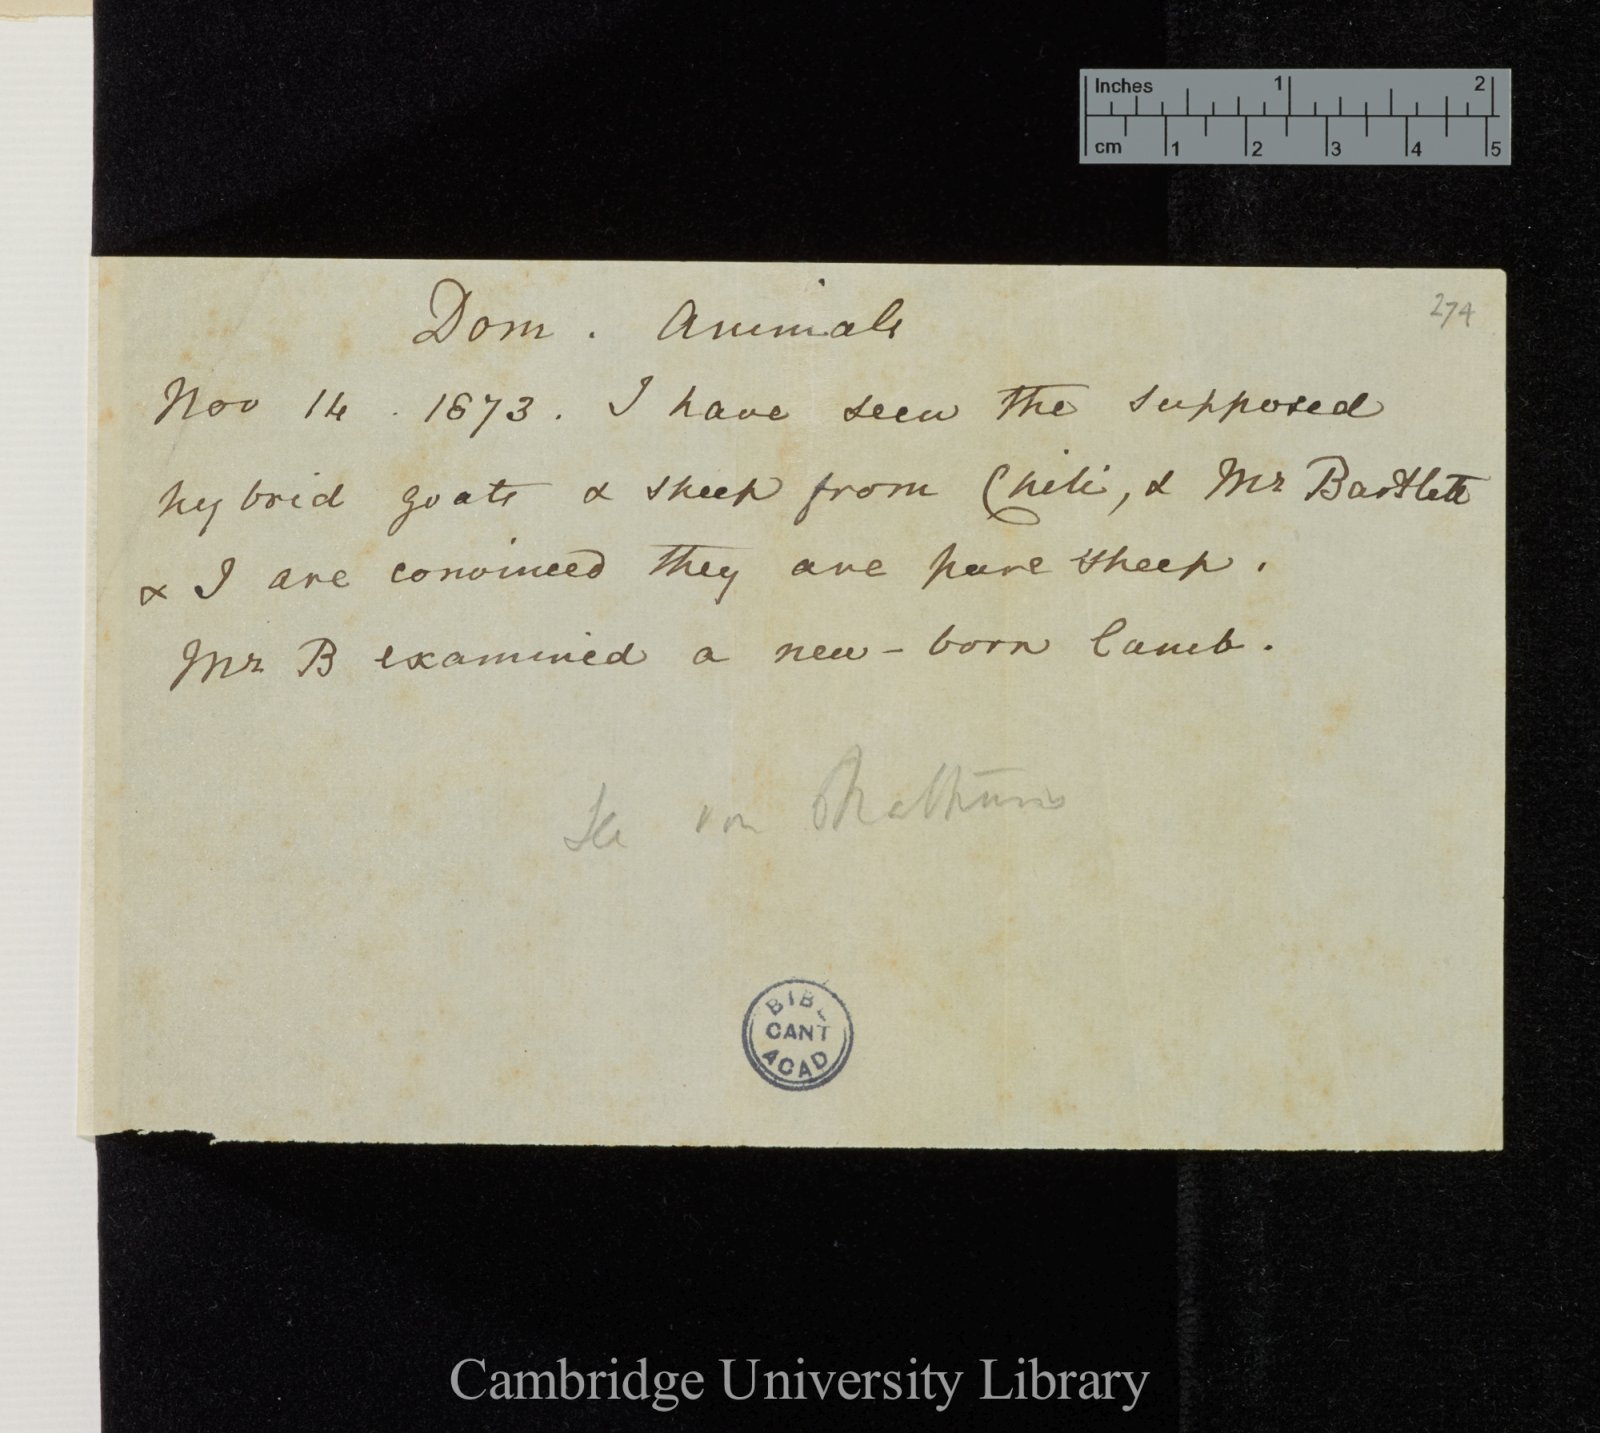 Inches 1 2
cm 1 2 3 4 5
274
Dom. Animals
Nov 14. 1873. I have seen the supposed
hybrid goats & sheep from Chili, & Mr Bartlett
& I are convinced they are pure sheep.
Mr B examined a new-born lamb.
von
BIBL
CANT
ACAD
Cambridge University Library